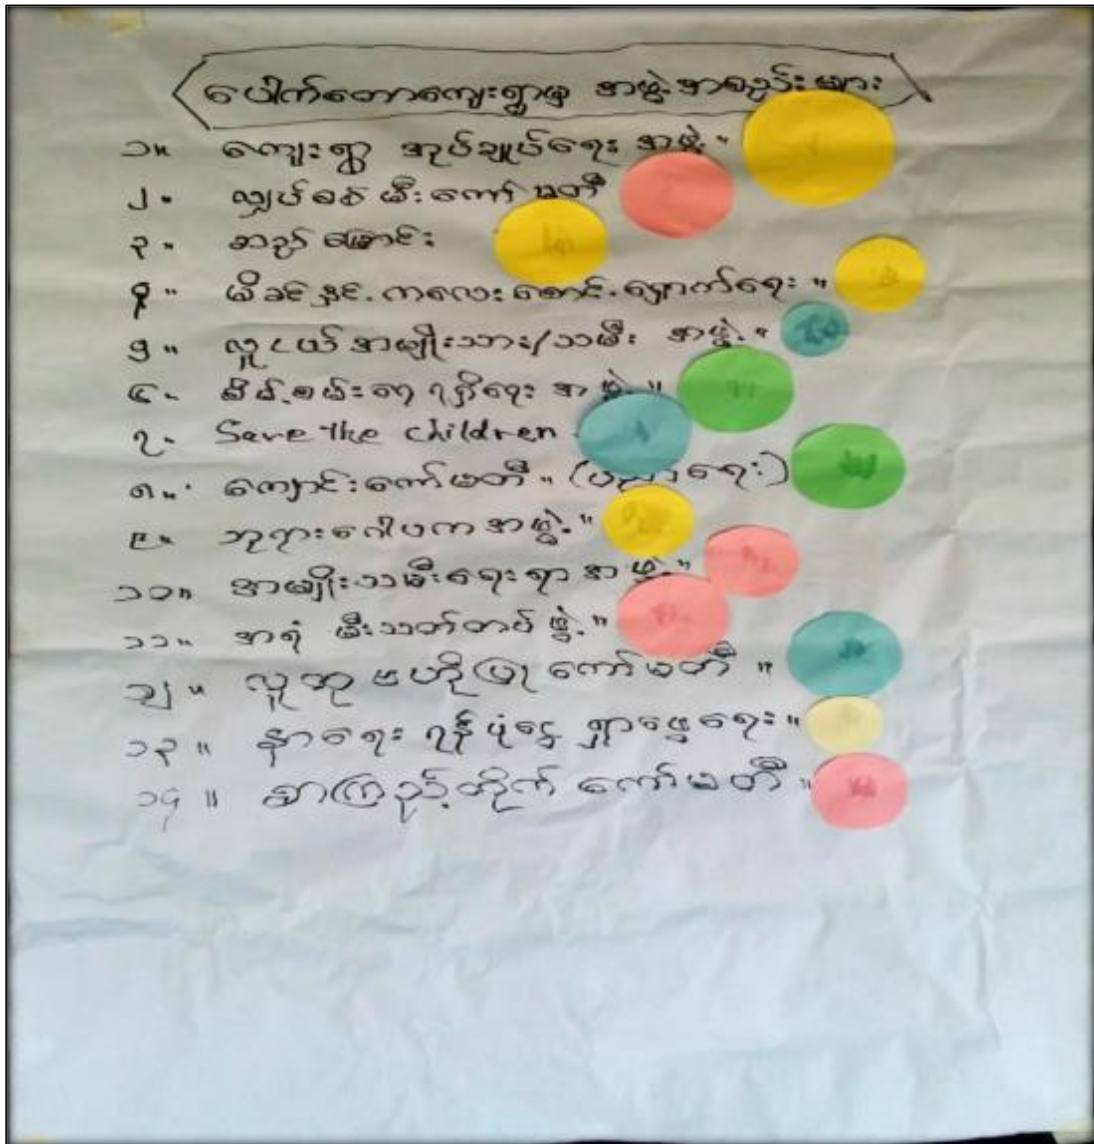 ပေါက်တောကျေးရွာမှ အဖွဲ့အစည်းများ
၁။ ကျေးရွာ အုပ်ချုပ်ရေး အဖွဲ့။
၂။ လျှပ်စစ်မီးကော်မတီ
၃။ ဆည်မြောင်း
၄။ မိခင်နှင့်ကလေးစောင့်ရှောက်ရေး။
၅။ လူငယ်အမျိုးသား/သမီး အဖွဲ့။
၆။ စိမ်းရေရရှိရေး အဖွဲ့။
၇။ Save the children
၈။ ကျောင်းကော်မတီ။ (ပညာရေး)
၉။ ဘုရားဂေါပကအဖွဲ့။
၁၀။ အမျိုးသမီးရေးရာအဖွဲ့။
၁၁။ အရံ မီးသတ်တပ်ဖွဲ့။
၁၂။ လူထုဗဟိုပြုကော်မတီ။
၁၃။ နာရေး ရန်ပုံငွေ ရှာဖွေရေး။
၁၄။ စာကြည့်တိုက် ကော်မတီ။